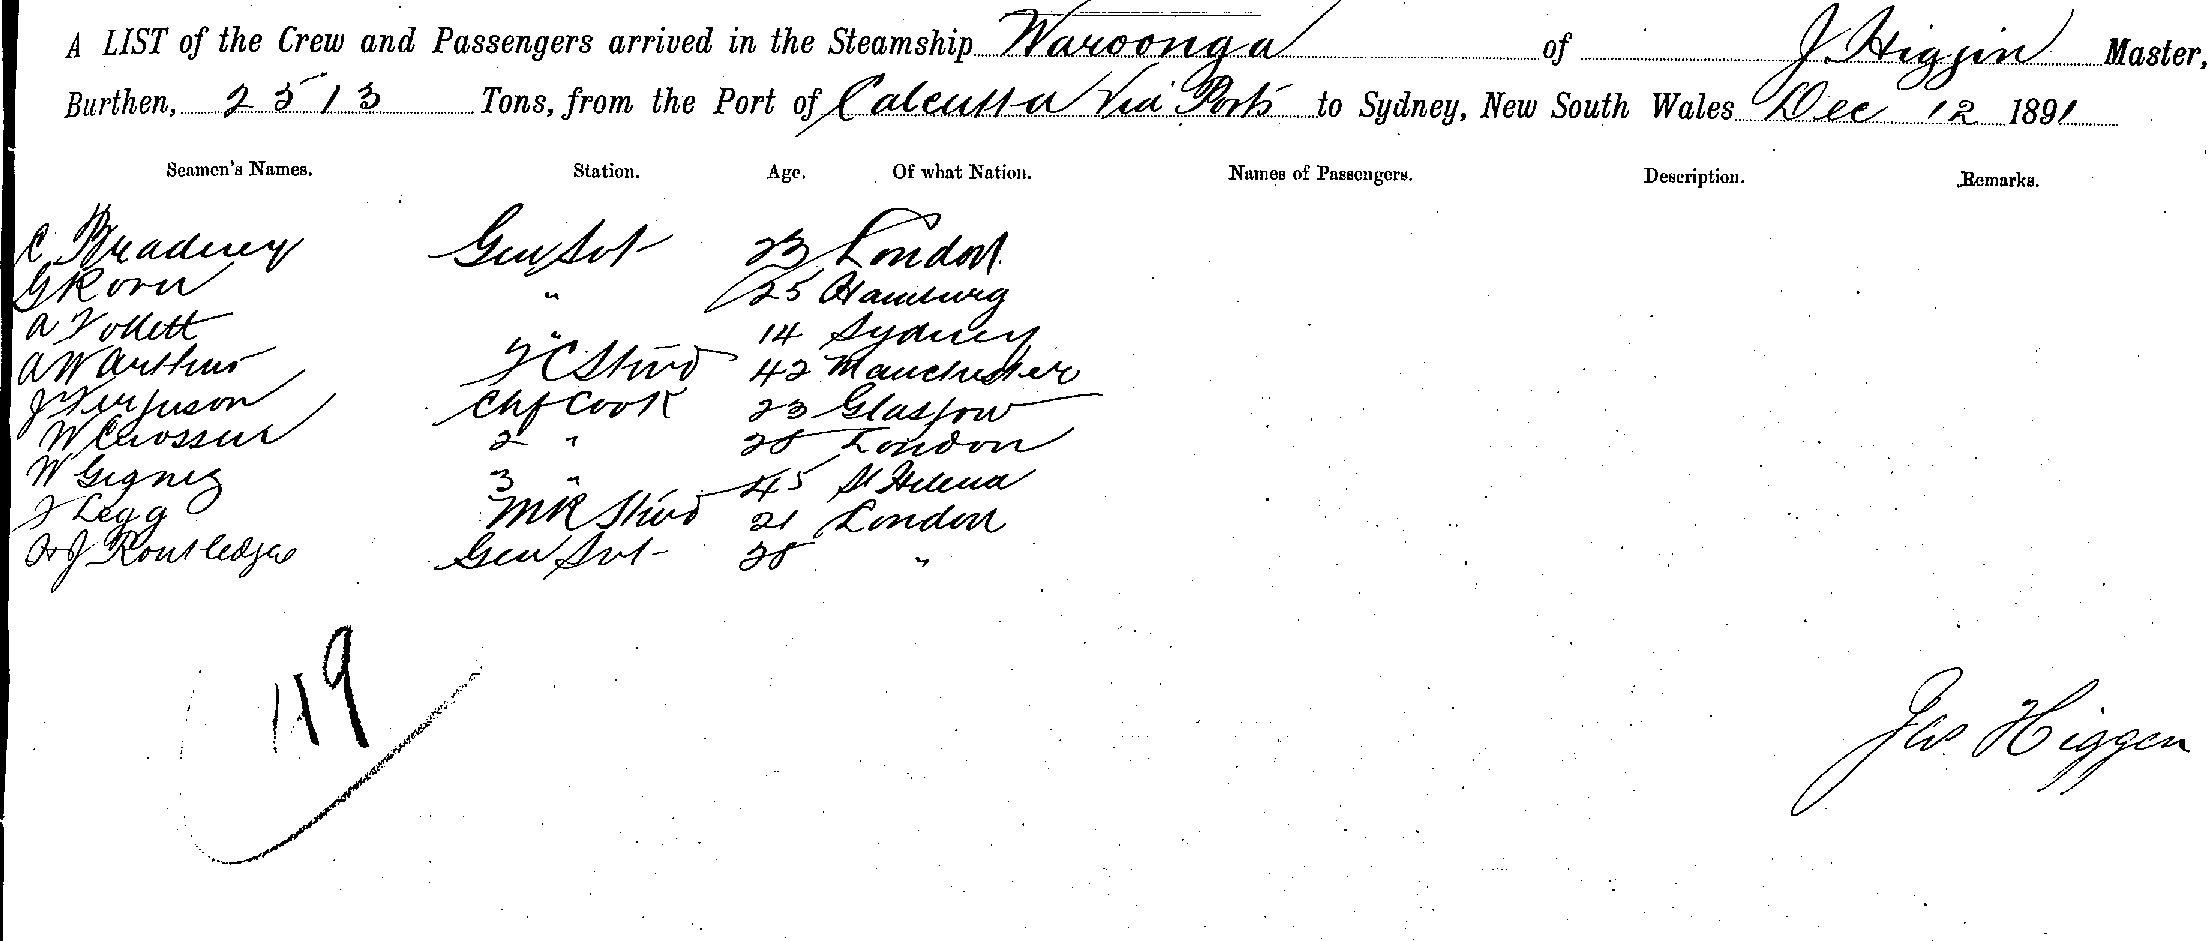 A LIST of the Crew and Passengers arrived in the Steamship Waroonga of J Higgin Master,
Burthen, 2513 Tons, from the Port of Calcutta via Ports to Sydney, New South Wales Dec 12 1891
Seamen's Names. Station. Age. Of what Nation. Names of Passengers. Description. Remarks.
C Bradney Gen Svt 23 London
G Korn " 25 Hamburg
A Follett " 14 Sydney
A W Arthur F C Stwd 42 Manchester
J Ferguson Chf Cook 23 Glasgow
W 2 " 28 London
W 3 " 45 St Helena
J Legg MR Stwd 21 London
J Routledge Gen Svt 28 "
119
Jas Higgen